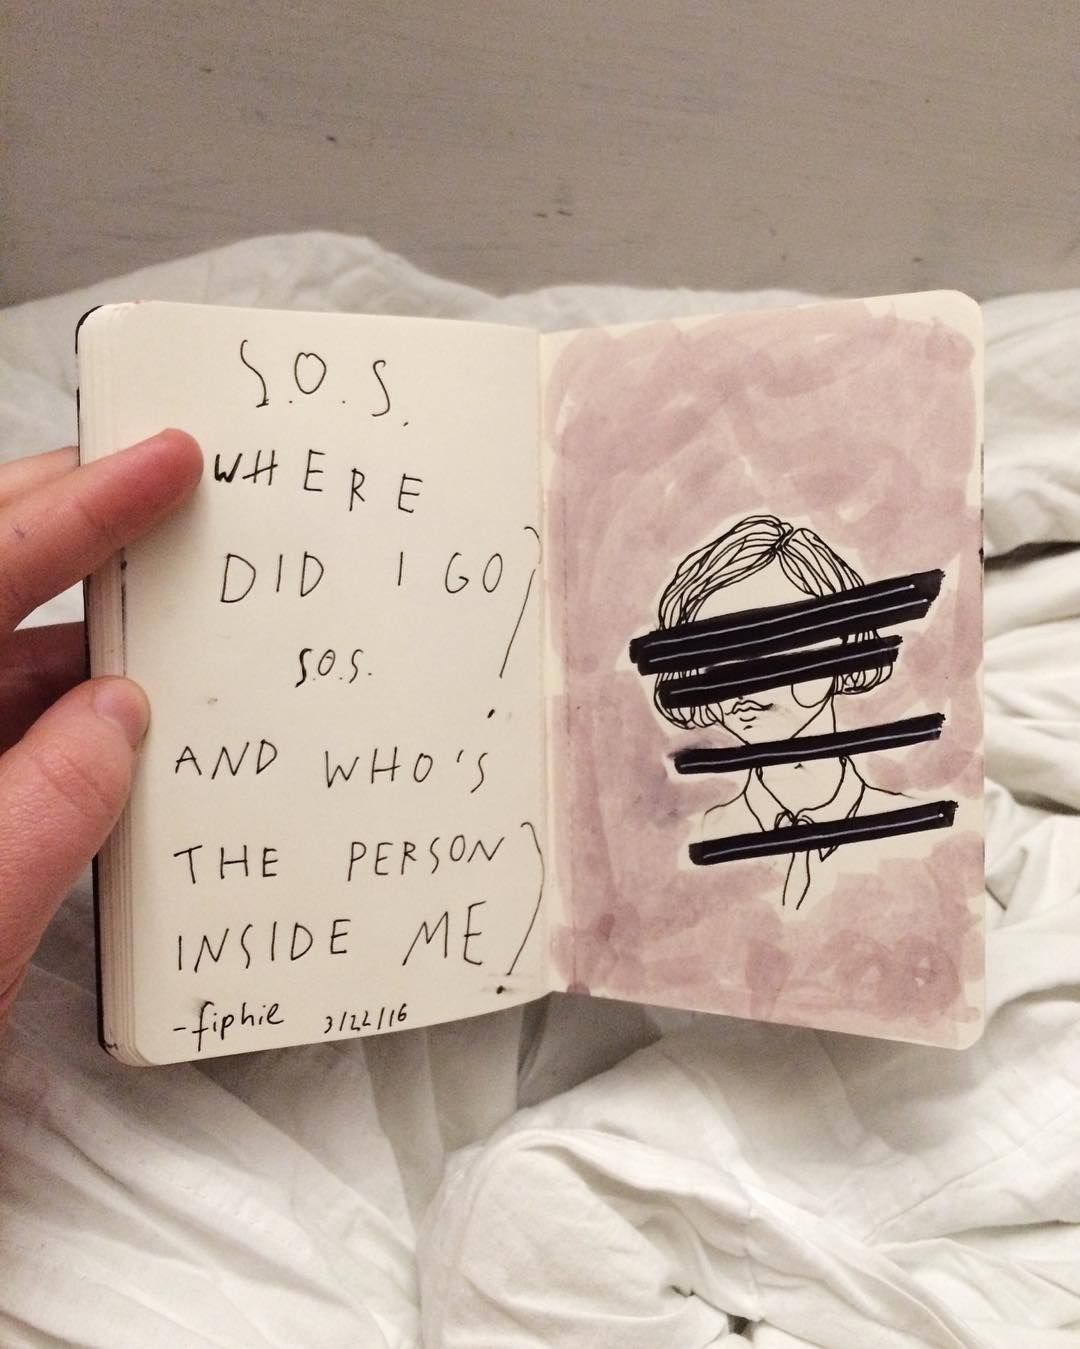 S.O.S.
WHERE
DID I GO?
S.O.S.
AND WHO'S
THE PERSON
INSIDE ME?
- fiphie 3/22/16